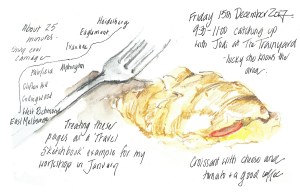 About 25
minutes.
Heidelberg
Eaglemont
Ivanhoe
Alphington
Fairfield
Clifton Hill
Collingwood
West Richmond
East Melbourne
Treating these
pages as a 'Travel
Sketchbook' example for my
workshop in January
Friday 15th December 2007
9:30-11:00 catching up
with Jodi at The Tramyard
lucky she knows the
area.
Croissant with cheese and
tomato + a good coffee